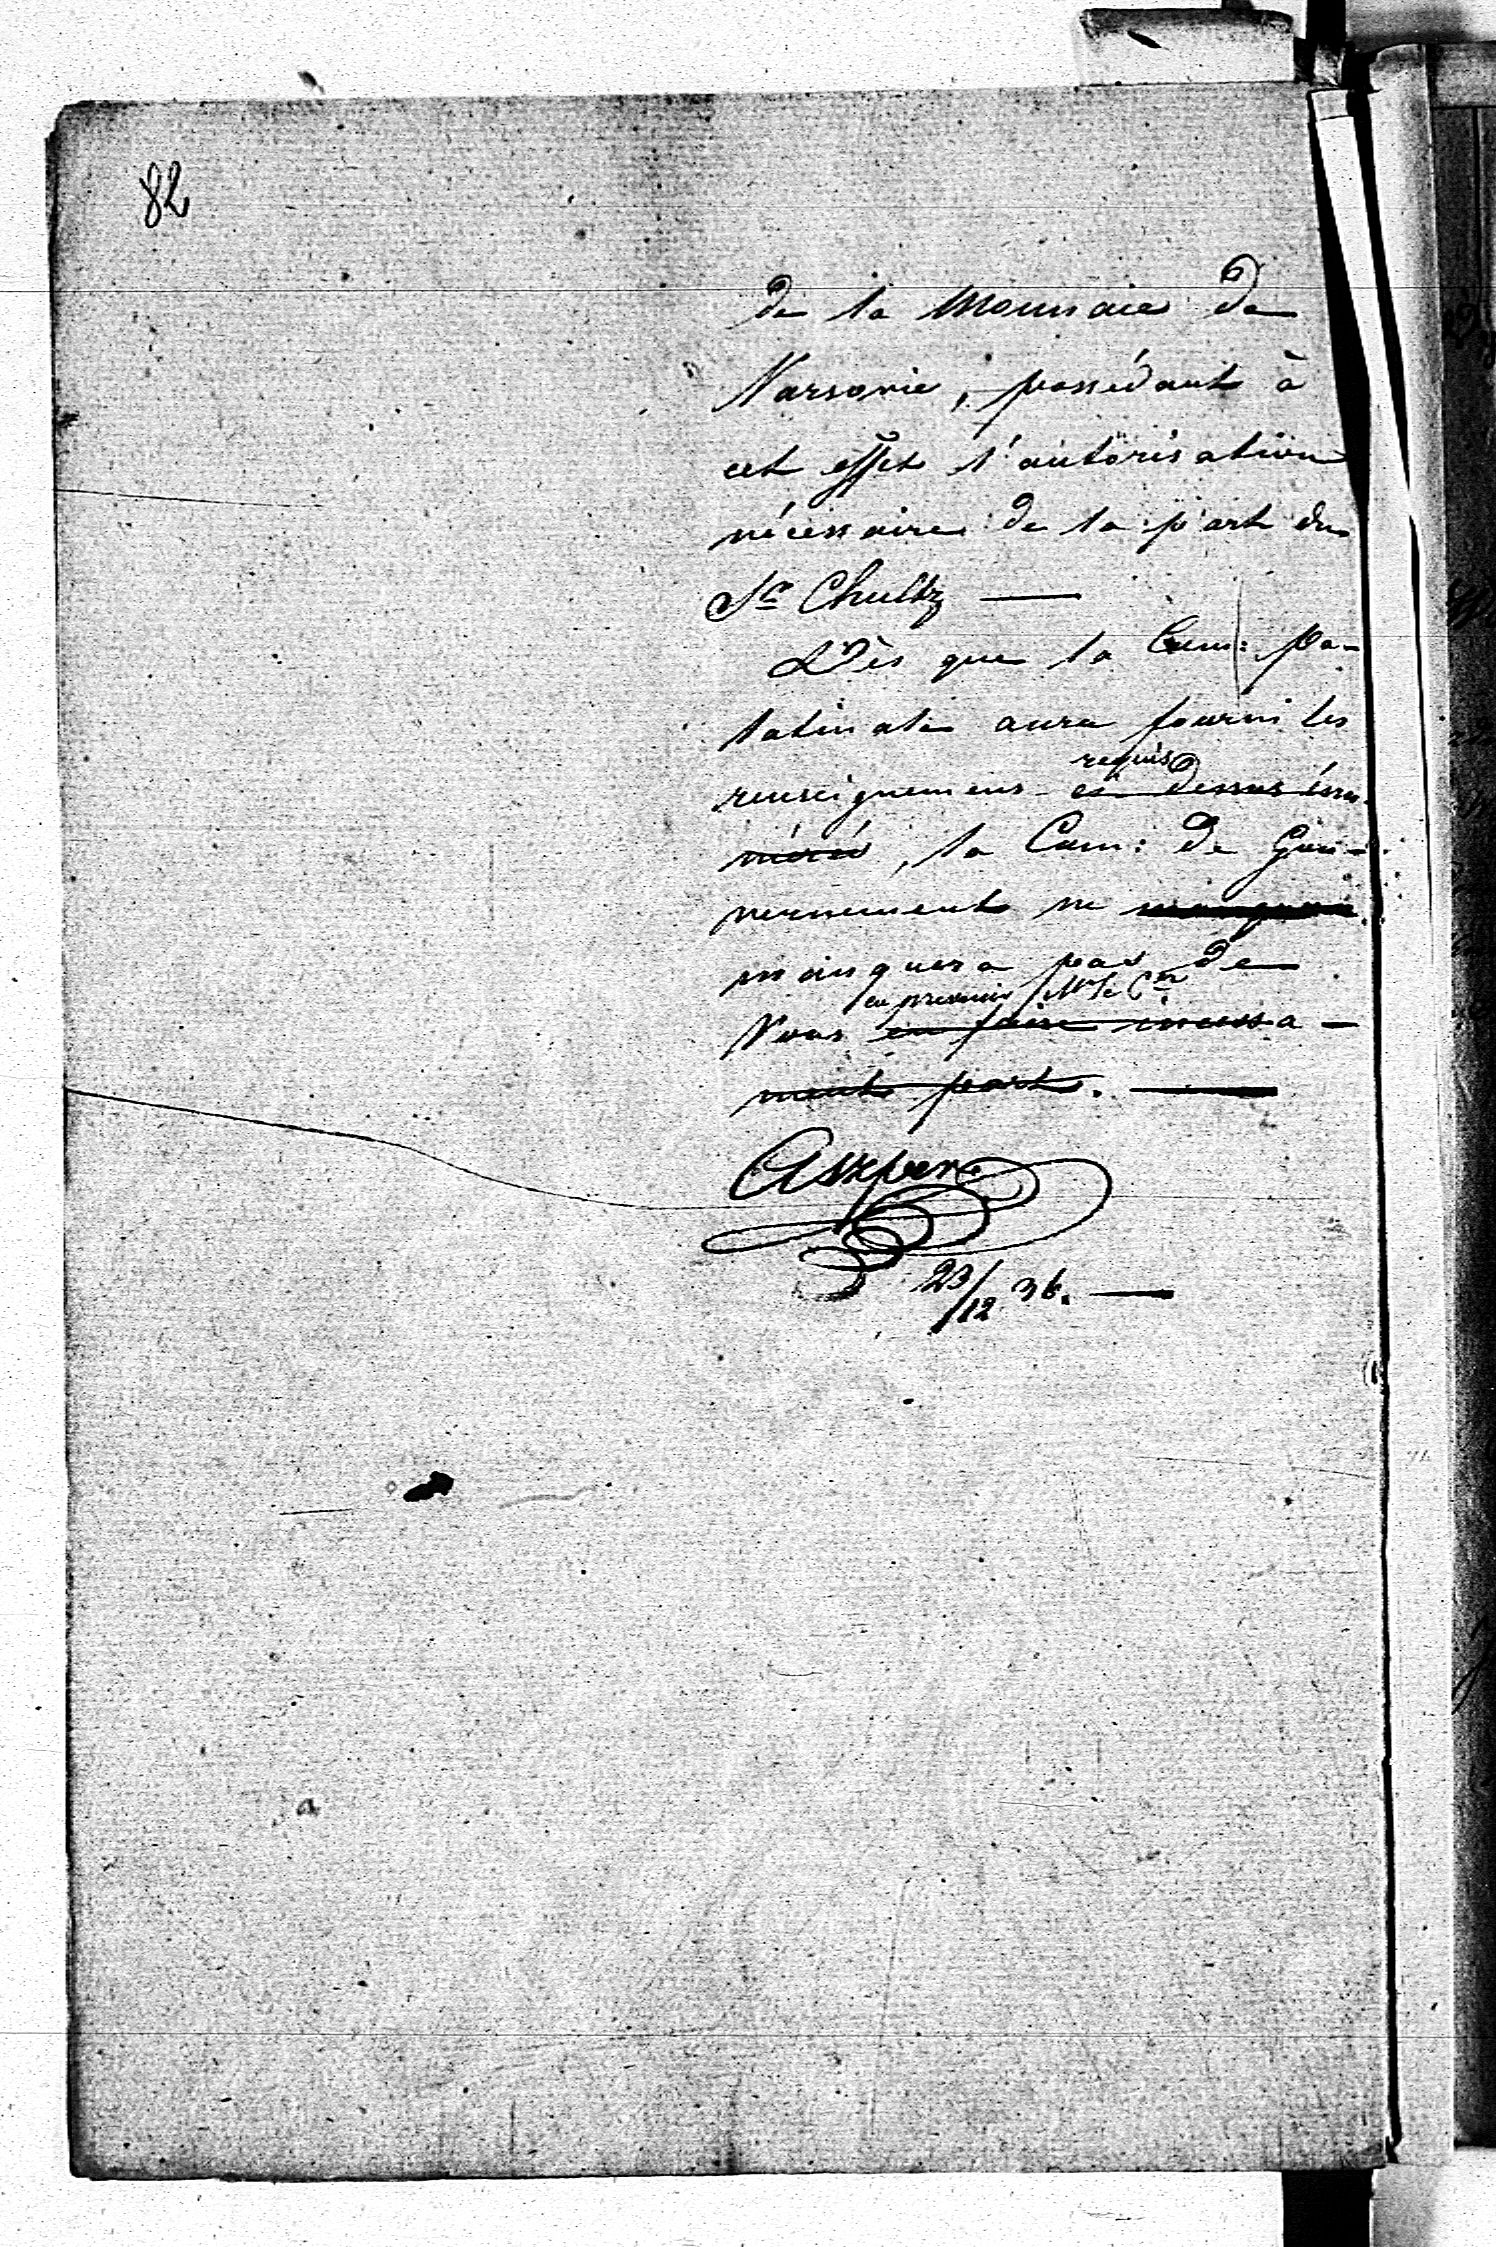 82
de la Monnaie de
Varsovie, possédant à
cet effet l'autorisation
nécessaire de la part du
Sr Chultz —
Dès que la Com: Pa-
latinale aura fourni les
requis
renseignemens ci-dessus énu-
mérés, la Com: de Gou-
vernement ne manquera
manquera pas de
en prévenir Mr le Cte
Vous en faire incessa-
ment part. —
Aszperg
23/12 36. —